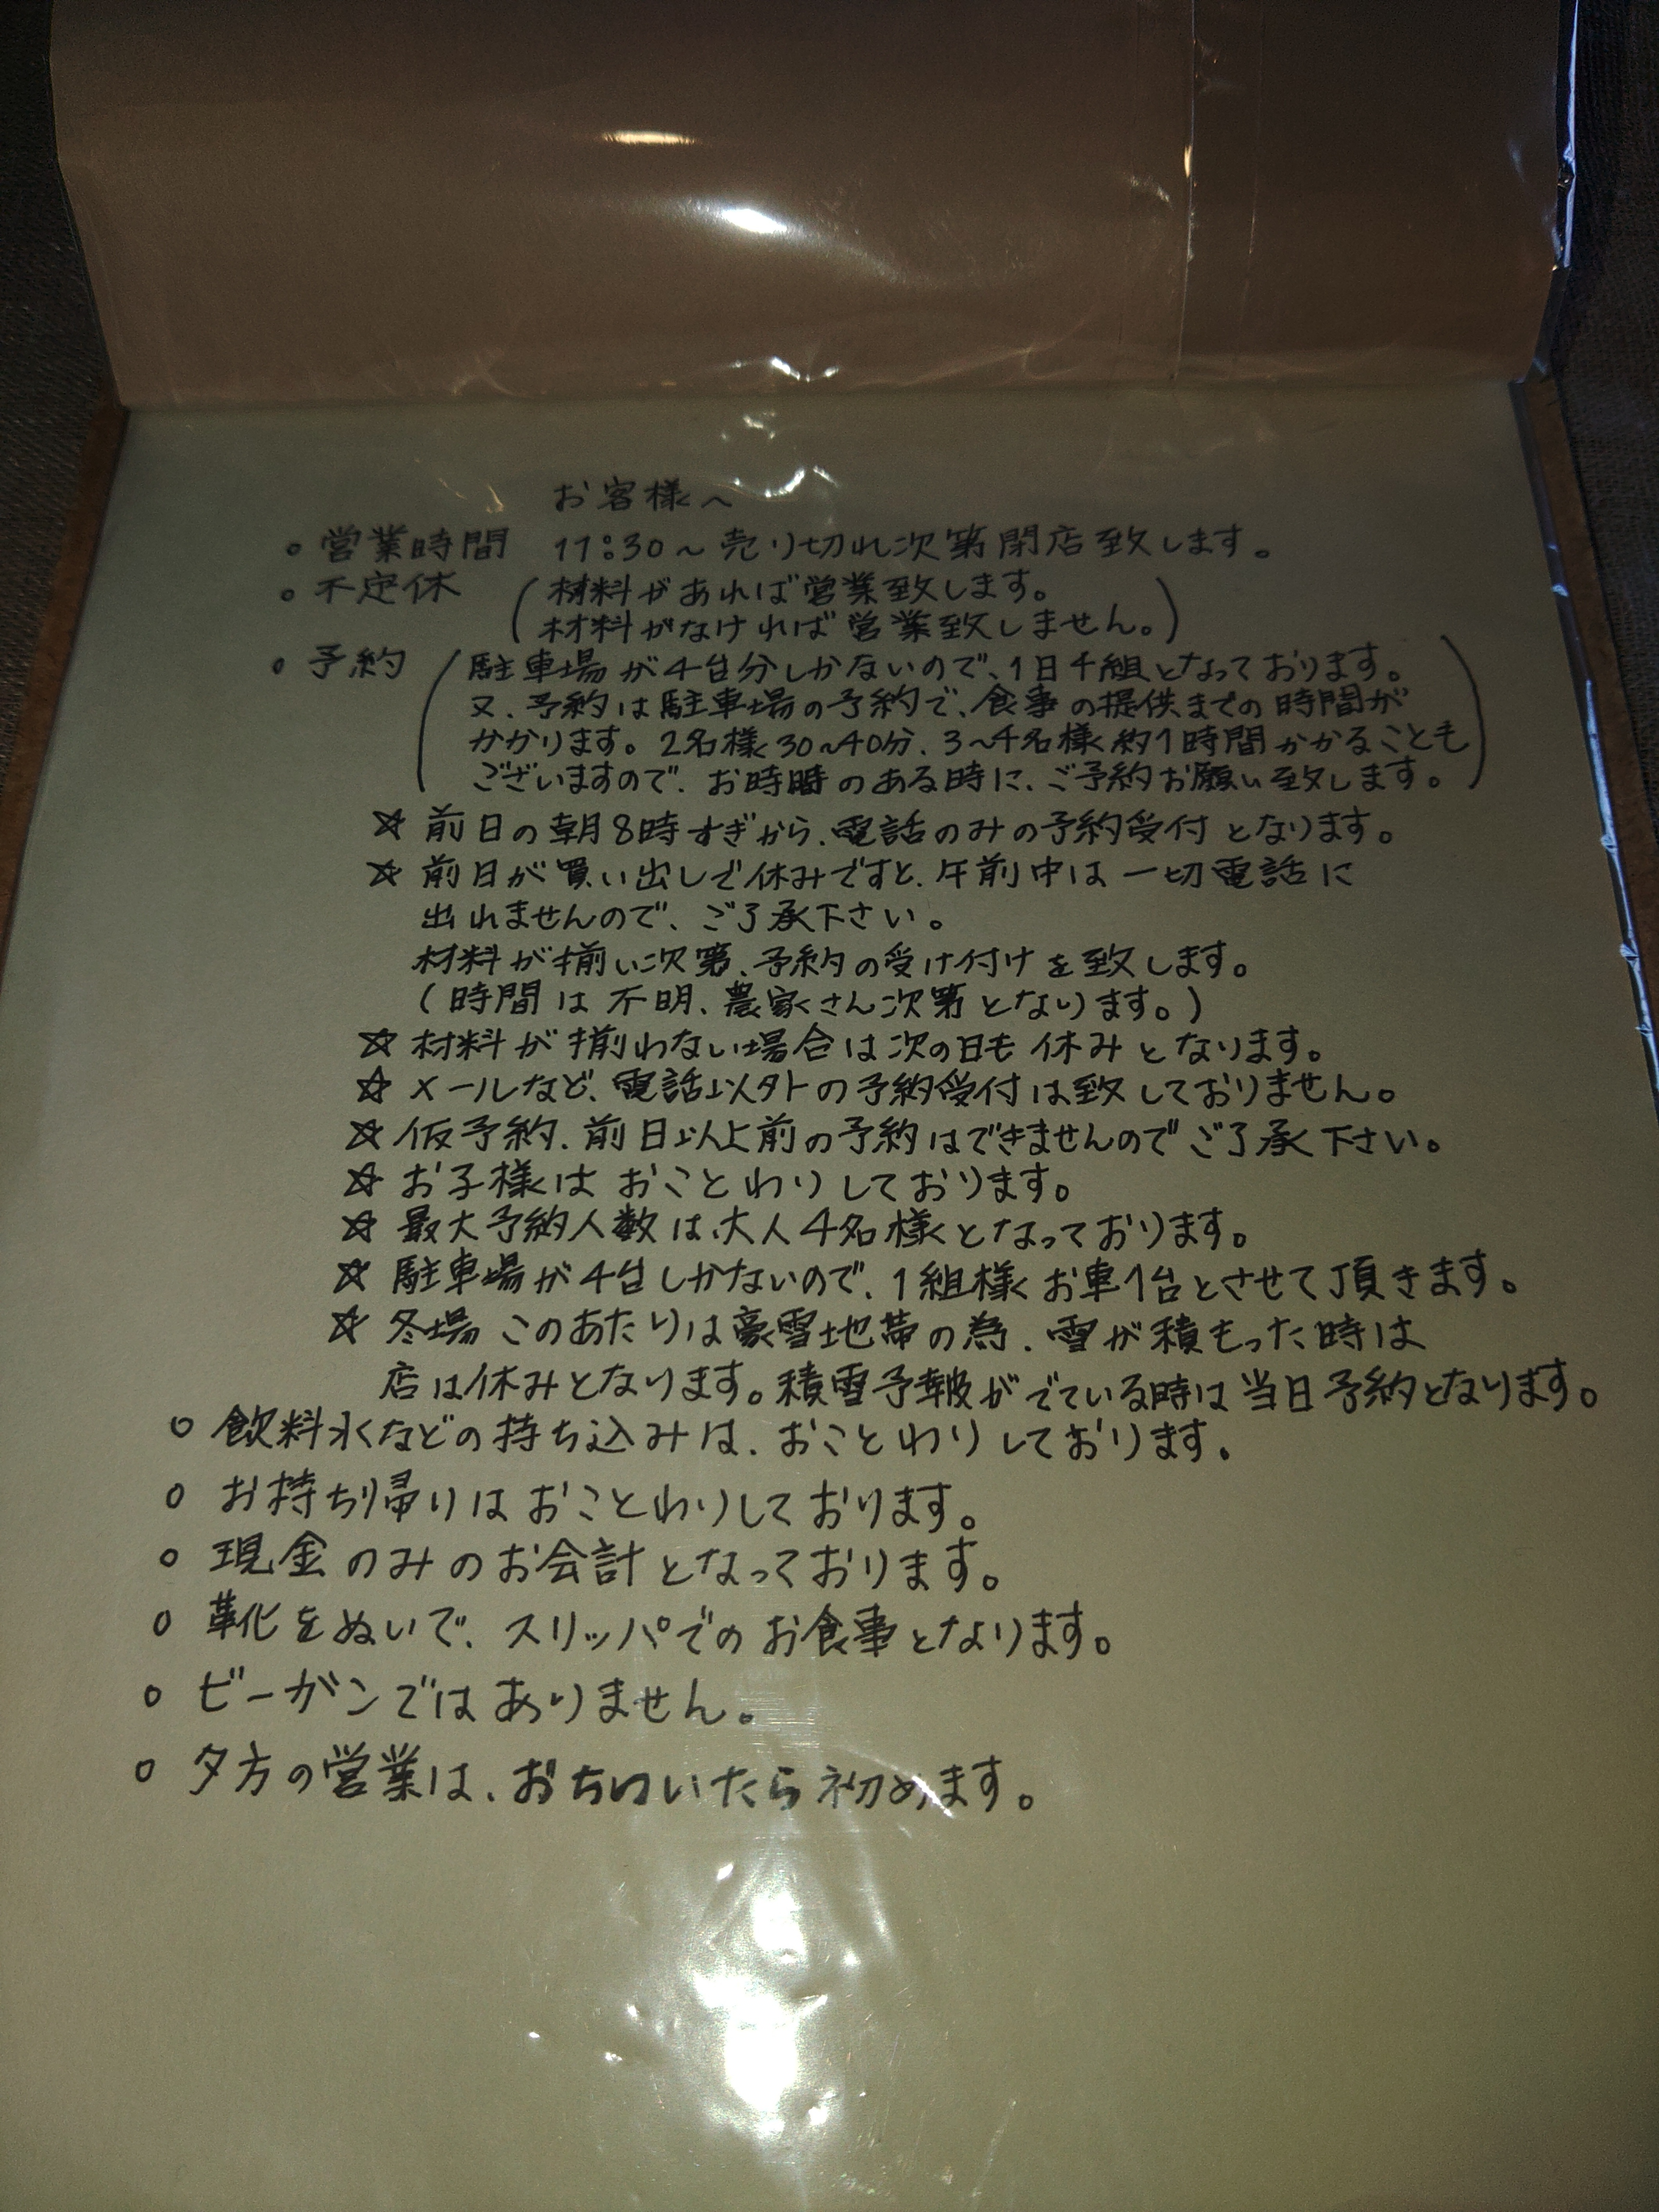 お客様へ
○ 営業時間 11:30～売り切れ次第閉店致します。
○ 不定休 (材料があれば営業致します。
材料がなければ営業致しません。)
○ 予約 (駐車場が4台分しかないので、1日4組となっております。
又、予約は駐車場の予約で、食事の提供までの時間が
かかります。2名様30～40分、3～4名様約1時間かかることも
ございますので、お時間のある時に、ご予約お願い致します。)
☆ 前日の朝8時すぎから、電話のみの予約受付となります。
☆ 前日が買い出しで休みですと、午前中は一切電話に
出れませんので、ご了承下さい。
材料が揃い次第、予約の受け付けを致します。
(時間は不明、農家さん次第となります。)
☆ 材料が揃わない場合は次の日も休みとなります。
☆ メールなど、電話以外の予約受付は致しておりません。
☆ 仮予約、前日以上前の予約はできませんのでご了承下さい。
☆ お子様はおことわりしております。
☆ 最大予約人数は、大人4名様となっております。
☆ 駐車場が4台しかないので、1組様お車1台とさせて頂きます。
☆ 冬場このあたりは豪雪地帯の為、雪が積もった時は
店は休みとなります。積雪予報がでている時は当日予約となります。
○ 飲料水などの持ち込みは、おことわりしております。
○ お持ち帰りはおことわりしております。
○ 現金のみのお会計となっております。
○ 靴をぬいで、スリッパでのお食事となります。
○ ビーガンではありません。
○ 夕方の営業は、おちついたら初めます。